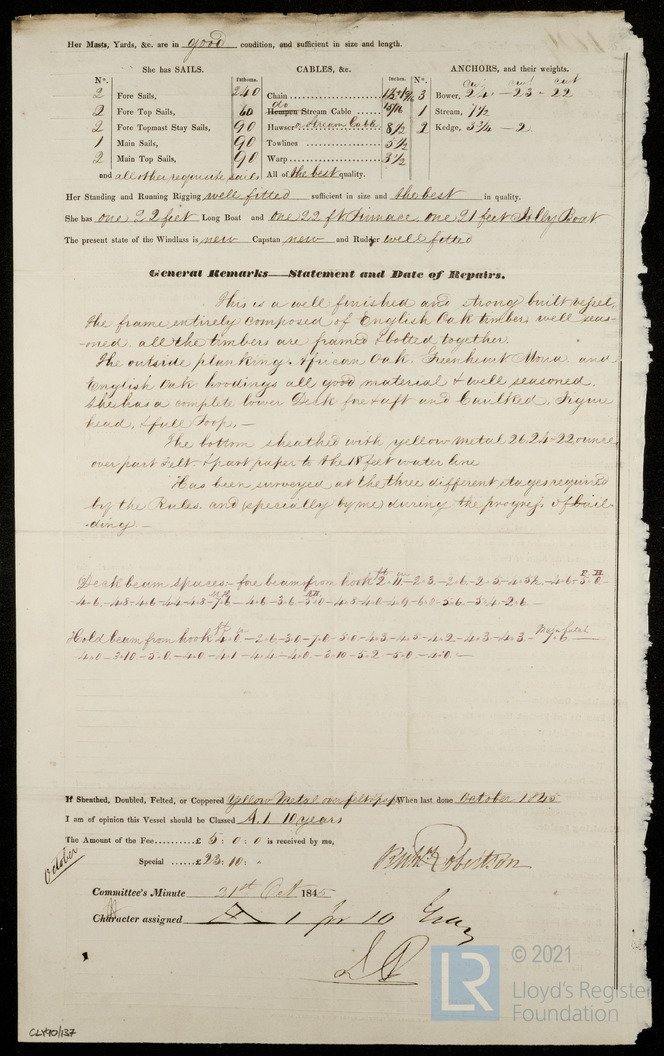 Her Masts, Yards, &c. are in good condition, and sufficient in size and length.
She has SAILS. CABLES, &c. ANCHORS, and their weights.
N°. Fathoms. Inches. N°. cwt cwt cwt
2 Fore Sails, 240 Chain 3 Bower, 24 - 23 - 22
2 Fore Top Sails, 60 do Hempen Stream Cable 15/16 1 Stream, 7½
2 Fore Topmast Stay Sails, 90 Hawser Stream Cable 8½ 2 Kedge, 3¾ - 2
1 Main Sails, 90 Towlines 5½
2 Main Top Sails, 90 Warp 3½
and all other requisite sails All of the best quality.
Her Standing and Running Rigging well fitted sufficient in size and the best in quality.
She has one 22 feet Long Boat and one 22 ft Pinnace, one 21 feet Jolly Boat
The present state of the Windlass is new Capstan new and Rudder well fitted
General Remarks—Statement and Date of Repairs.
This is a well finished and strong built vessel,
the frame entirely composed of English Oak timber well sea-
-oned. all the timbers are framed & bolted together.
The outside planking African Oak, Greenheart Mora and
English Oak hoodings all good material & well seasoned.
She has a complete lower Deck fore & aft and Caulked, Figure
head, & full Poop, —
The bottom sheathed with yellow metal 26.24-22 ounce
over part Felt & part paper to the 18 feet water line
Has been surveyed at the three different stages required
by the Rules. and specially by me during the progress of buil-
-ding —
Deck beam spaces:- fore beam from hook 2.11 - 2.3 - 2.6 - 2.5 - 4.5½ - 4.6 -
4.6 - 4.8 - 4.6 - 4.4 - 4.8 - 7.6 - 4.6 - 3.6 - 5.0 - 4.8 - 4.0 - 4.9 - 6.0 - 5.6 - 5.4 - 2.6 -
Hold beam from hook 4.0 - 2.6 - 3.0 - 7.0 - 5.0 - 4.3 - 4.5 - 4.2 - 4.3 - 4.3 - 7.6
4.0 - 3.10 - 5.0 - 4.0 - 4.1 - 4.4 - 4.0 - 3.10 - 5.2 - 5.0 - 4.0 -
If Sheathed, Doubled, Felted, or Coppered Yellow Metal over felt & pap When last done October 1845
I am of opinion this Vessel should be Classed A.1. 10 years
The Amount of the Fee......£ 5 : 0 : 0 is received by me,
Special ......£ 23 : 10 : "
Robertson
October
Committee's Minute 21st Oct 1845
Character assigned A 1 for 10 Years
© 2021
LR Lloyd's Register
Foundation
CLY90/137